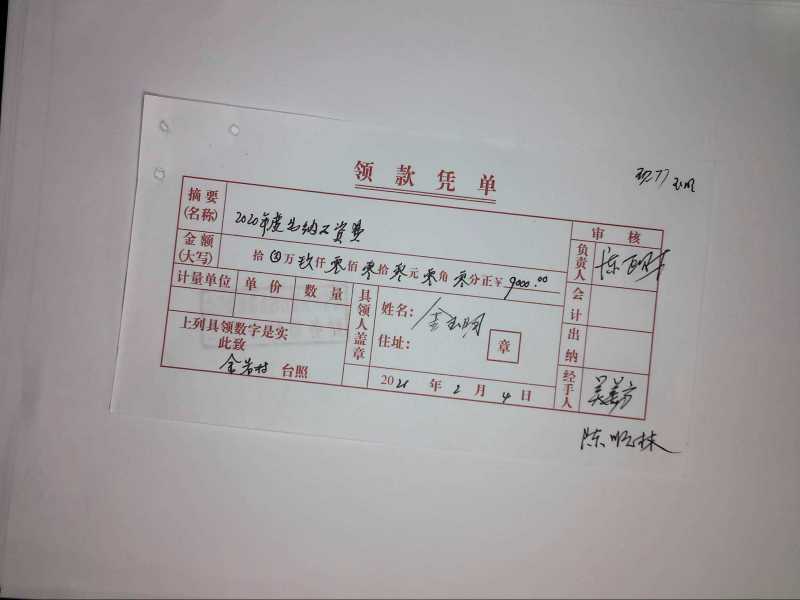 领款凭单
摘要
(名称)
2020年度出纳工资费
审核
金额
(大写)
拾⊗万玖仟零佰零拾零元零角零分正¥9000.00
负责人
计量单位 单价 数量
具领人盖章
姓名:
会计
上列具领数字是实
此致
住址:
章
出纳
金岩村 台照
2021年2月4日
经手人
吴美方
陈顺林